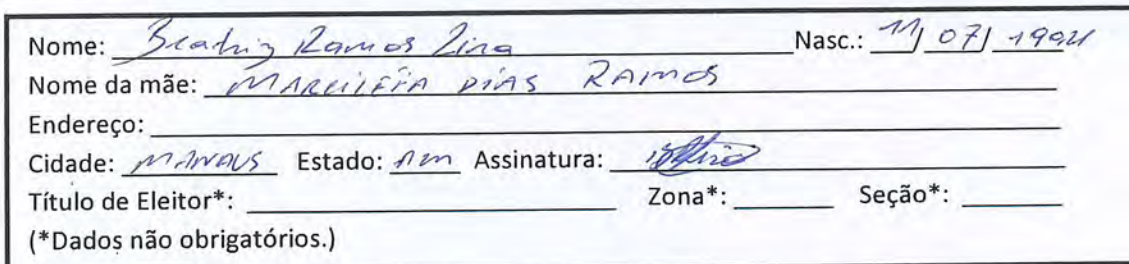 Nome: Beatriz Ramos Lira Nasc.: 11/07/1994
Nome da mãe: MARCILÉIA DIAS RAMOS
Endereço:
Cidade: MANAUS Estado: AM Assinatura:
Título de Eleitor*: Zona*: Seção*:
(*Dados não obrigatórios.)